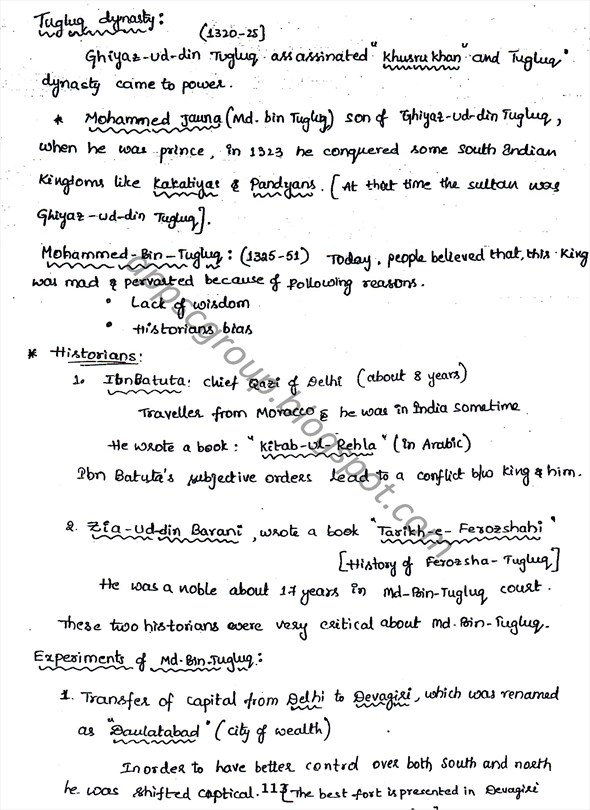 Tugluq dynasty:
(1320-25]
Ghiyaz-ud-din Tugluq assassinated "khusru khan" and Tugluq"
dynasty came to power.
* Mohammed Jauna (Md. bin Tuglug) son of Ghiyaz-ud-din Tugluq,
when he was prince, in 1323 he conquered some south Indian
kingdoms like Kakatiyas & Pandyans. [At that time the sultan was
Ghiyaz-ud-din Tugluq].
Mohammed-Bin-Tugluq: (1325-51) Today, people believed that, this King
was mad & pervarted because of following reasons.
• Lack of wisdom
• Historians bias
* Historians:
1. IbnBatuta: chief Qazi of Delhi (about 8 years)
Traveller from Morocco & he was in India sometime
He wrote a book: "kitab-ul-Rehla" (in Arabic)
Ibn Batuta's subjective orders lead to a conflict b/w king & him.
2. Zia-Ud-din Barani, wrote a book "Tarikh-e-Ferozshahi"
[History of Ferozsha-Tugluq]
He was a noble about 17 years in Md-Bin-Tugluq court.
These two historians were very critical about Md-Bin-Tugluq.
Experiments of Md-Bin-Tugluq:
1. Transfer of capital from Delhi to Devagiri, which was renamed
as "Daulatabad" (city of wealth)
Inorder to have better control over both south and north
he was shifted captical. 113 [The best fort is presented in Devagiri
appscgroup.blogspot.com